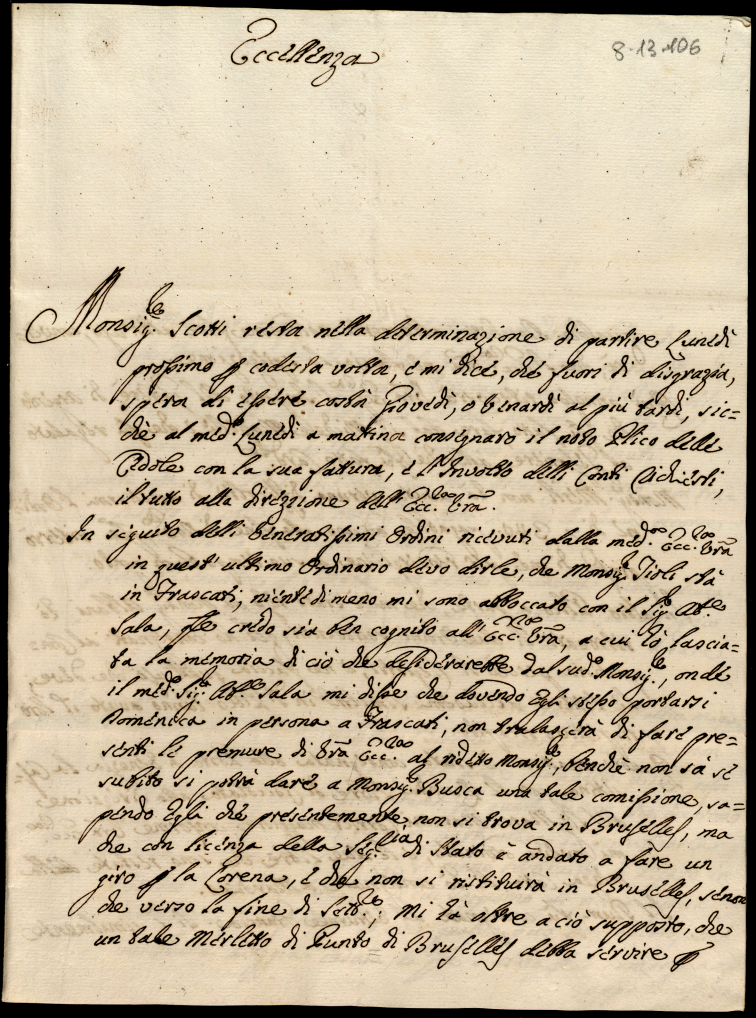 Eccellenza
8-13-106
Monsig.re Scotti resta nella determinazione di partire Lunedì
prossimo p codesta volta, e mi dice, che fuori di disgrazia,
spera di essere costà Giovedì, o Venardì al più tardi, sic-
chè al med.o Lunedì a mattina consegnarò il noto Plico delle
Cedole con la sua fattura, e l'Involto delli Conti
il tutto alla direzzione dell'Ecc.za Vra.
In seguito delli Veneratissimi Ordini ricevuti dalla med.a Ecc.za Vra
in quest'ultimo Ordinario devo dirle, che Monsig.re Tioli stà
in Frascati; nientedimeno mi sono abboccato con il Sig.r Ab.e
Sala, che credo sia ben cognito all'Ecc.za Vra, a cui hò lascia-
ta la memoria di ciò che desiderarebbe dal sud.o Monsig.re, onde
il med.o Sig.r Ab.e Sala mi disse che dovendo Egli stesso portarsi
Domenica in persona a Frascati, non tralascerà di fare pre-
senti le premure di Vra Ecc.za al ridetto Monsig.re, benchè non sà se
subito si potrà dare a Monsig.r Busca una tale comissione, sa-
pendo Egli che presentemente non si trova in Brusselles, ma
che con licenza della Seg.ria di Stato è andato a fare un
giro p la Lorena, e che non si restituirà in Brusselles, senon
che verso la fine di Sett.re; Mi hà oltre a ciò supposto, che
un tale Merletto di Punto di Brusselles debba servire p